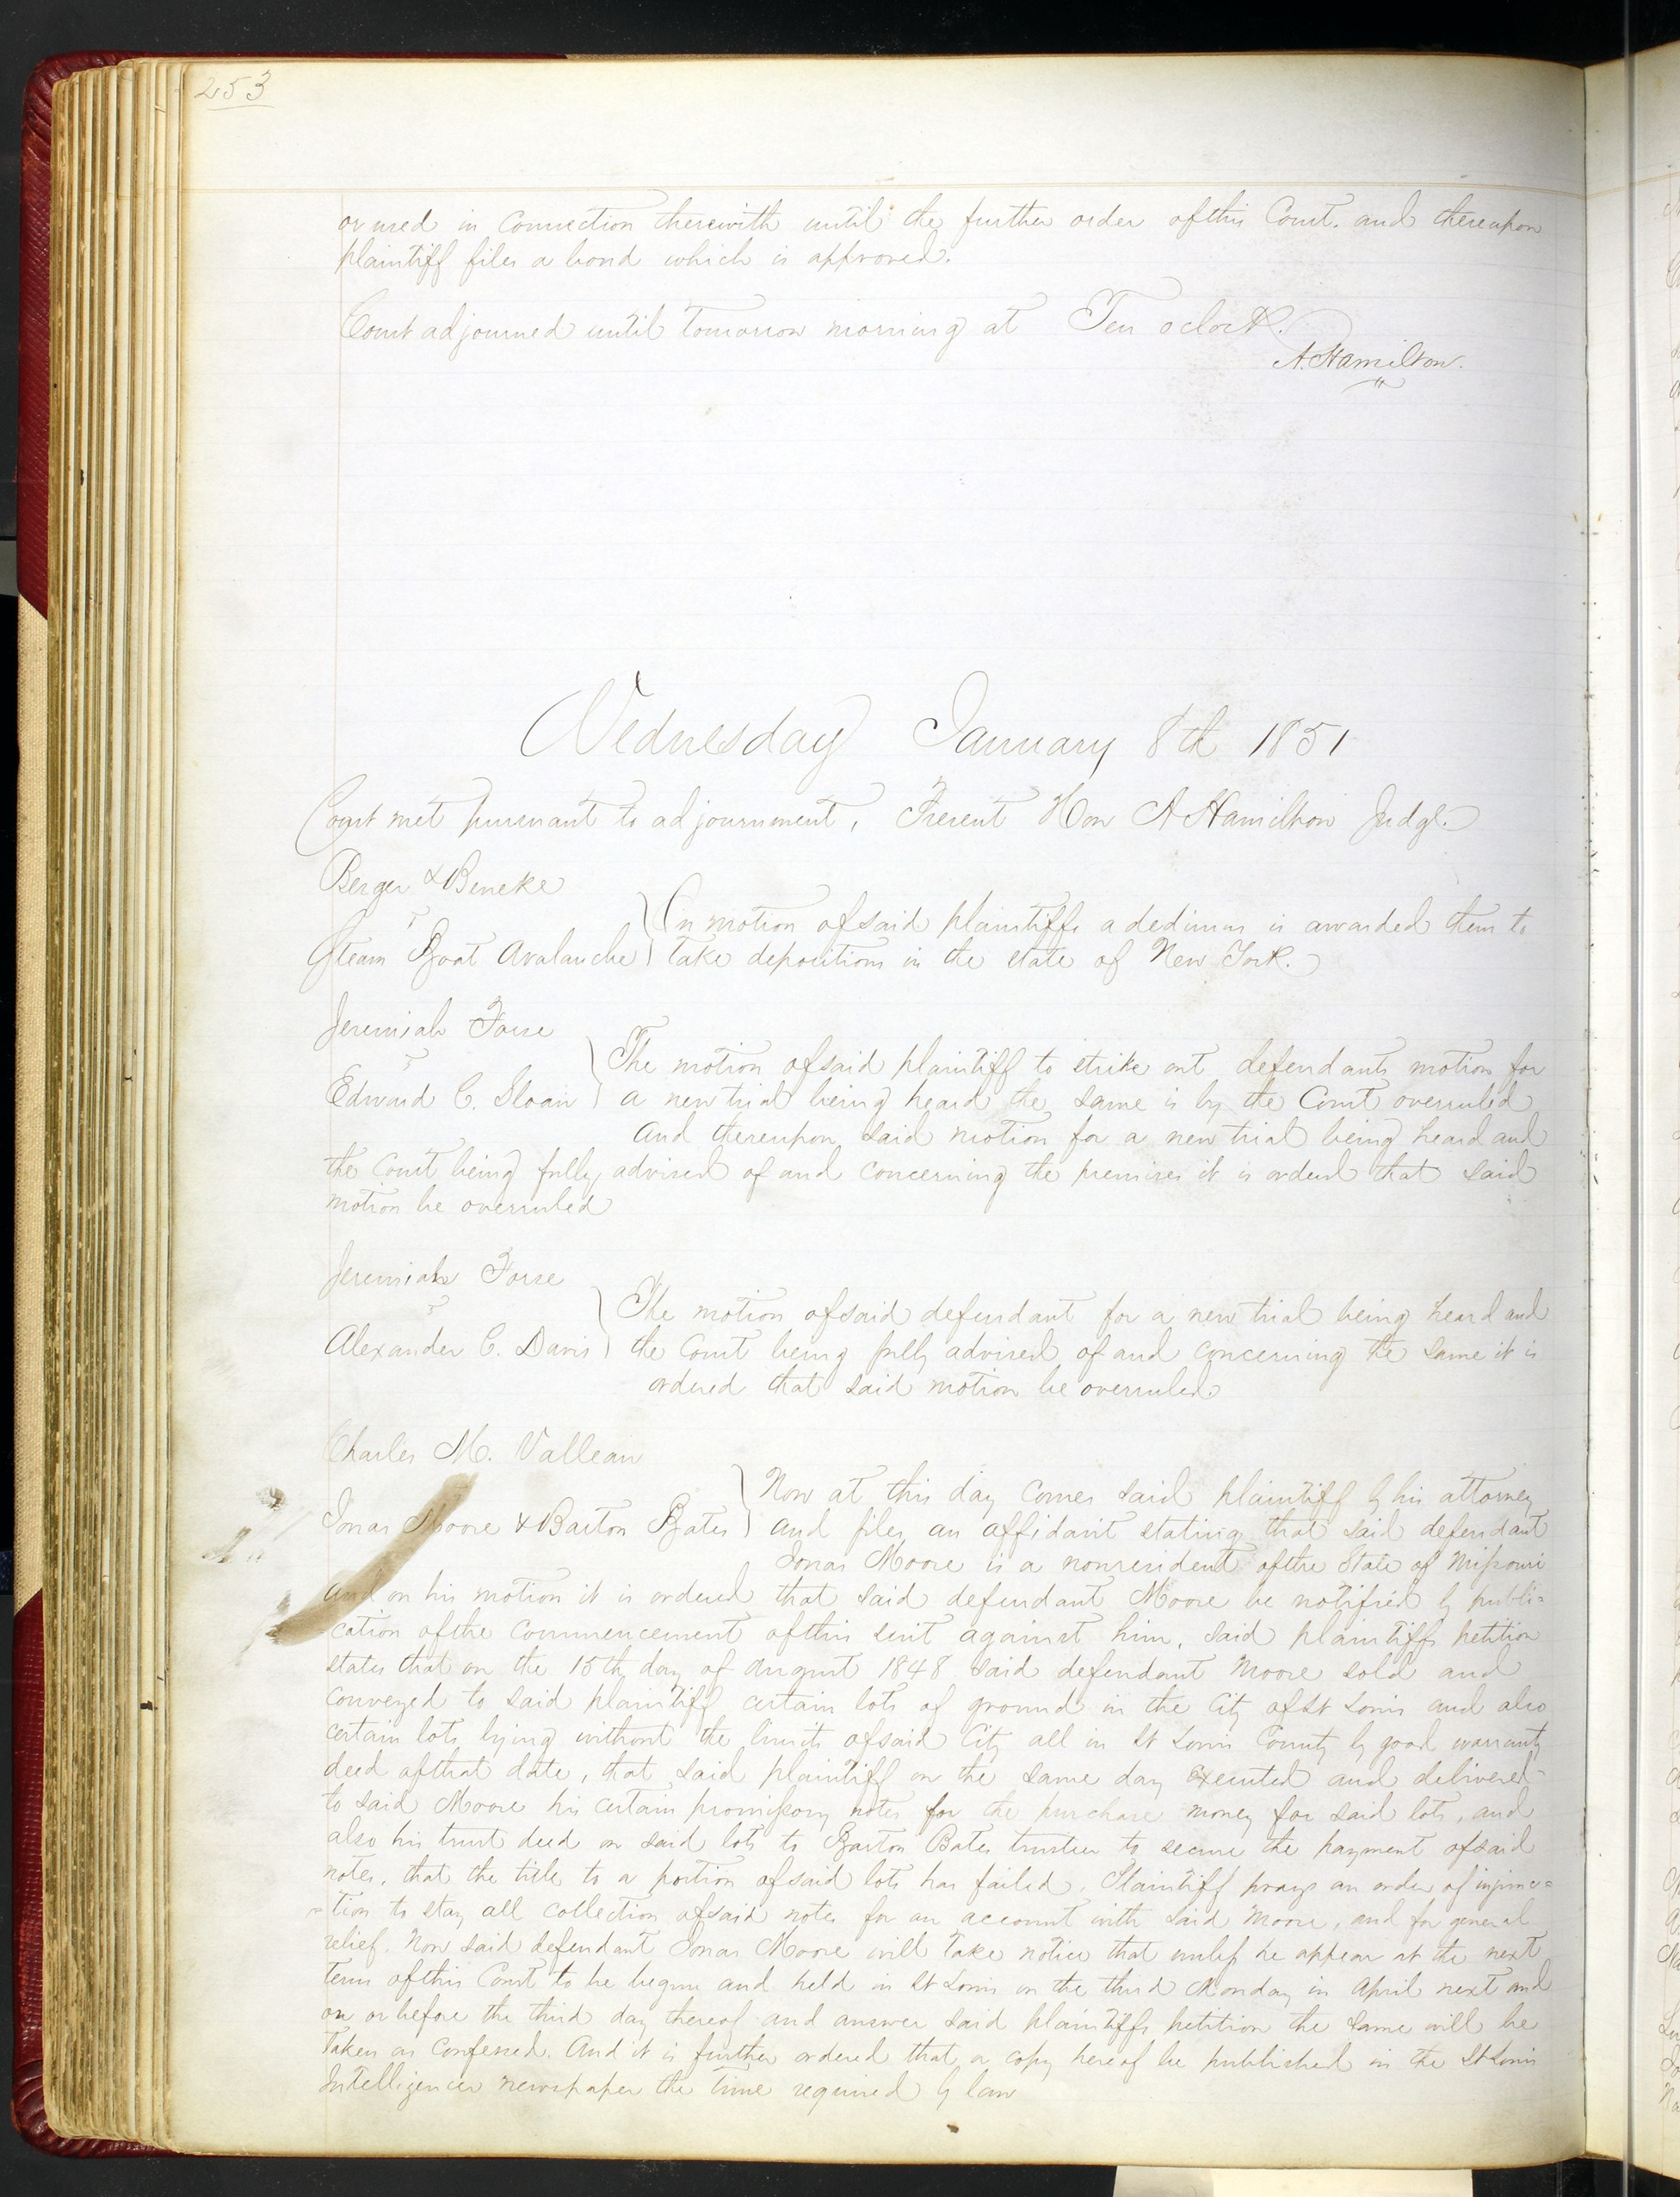 253
or used in connection therewith until the further order of this Court. and thereupon
plaintiff files a bond which is approved.
Court adjourned until tomorrow morning at Ten oclock.
A. Hamilton.
Wednesday January 8th 1851
Court met pursuant to adjournment, Present Hon A Hamilton Judge.
Berger & Beneke
vs
Steam Boat Avalanche } On motion of said plaintiffs a dedimus is awarded them to
take depositions in the state of New York.
Jeremiah Forse
vs
Edward C. Sloan } The motion of said plaintiff to strike out defendants motion for
a new trial being heard the same is by the Court overruled
And thereupon said motion for a new trial being heard and
the Court being fully advised of and concerning the premises it is ordered that said
motion be overruled
Jeremiah Forse
vs
Alexander C. Davis } The motion of said defendant for a new trial being heard and
the Court being fully advised of and concerning the same it is
ordered that said motion be overruled.
Charles M. Valleau
Jonas Moore & Barton Bates } Now at this day comes said plaintiff by his attorney
and files an affidavit stating that said defendant
Jonas Moore is a nonresident of the State of Missouri
and on his motion it is ordered that said defendant Moore be notified by publi=
cation of the commencement of this suit against him, said plaintiffs petition
states that on the 15th day of August 1848 said defendant Moore sold and
conveyed to said plaintiff certain lots of ground in the City of St Louis and also
certain lots lying without the limits of said City all in St Louis County by good warranty
deed of that date, that said plaintiff on the same day executed and delivered
to said Moore his certain promissory notes for the purchase money for said lots, and
also his trust deed on said lots to Barton Bates trustee to secure the payment of said
notes, that the title to a portion of said lots has failed. Plaintiff prays an order of injunc=
=tion to stay all collection of said notes for an account with said Moore, and for general
relief. Now said defendant Jonas Moore will take notice that unless he appear at the next
term of this Court to be begun and held in St Louis on the third Monday in April next and
on or before the third day thereof and answer said plaintiffs petition the same will be
taken as confessed. And it is further ordered that a copy hereof be published in the St Louis
Intelligencer newspaper the time required by law